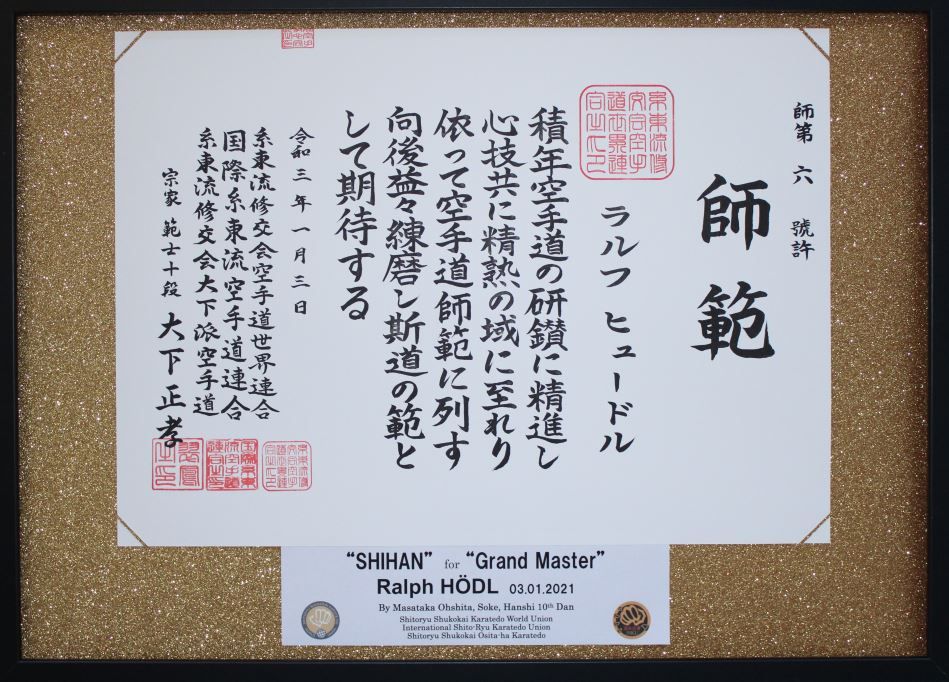 師第 六 號許
師範
ラルフ ヒュードル
積年空手道の研鑚に精進し
心技共に精熟の域に至れり
依って空手道師範に列す
向後益々練磨し斯道の範と
して期待する
令和三年一月三日
系東流修交会空手道世界連合
国際系東流空手道連合
系東流修交会大下派空手道
宗家 範士十段 大下正孝
“SHIHAN” for “Grand Master”
Ralph HÖDL 03.01.2021
By Masataka Ohshita, Soke, Hanshi 10th Dan
Shitoryu Shukokai Karatedo World Union
International Shito-Ryu Karatedo Union
Shitoryu Shukokai Osita-ha Karatedo